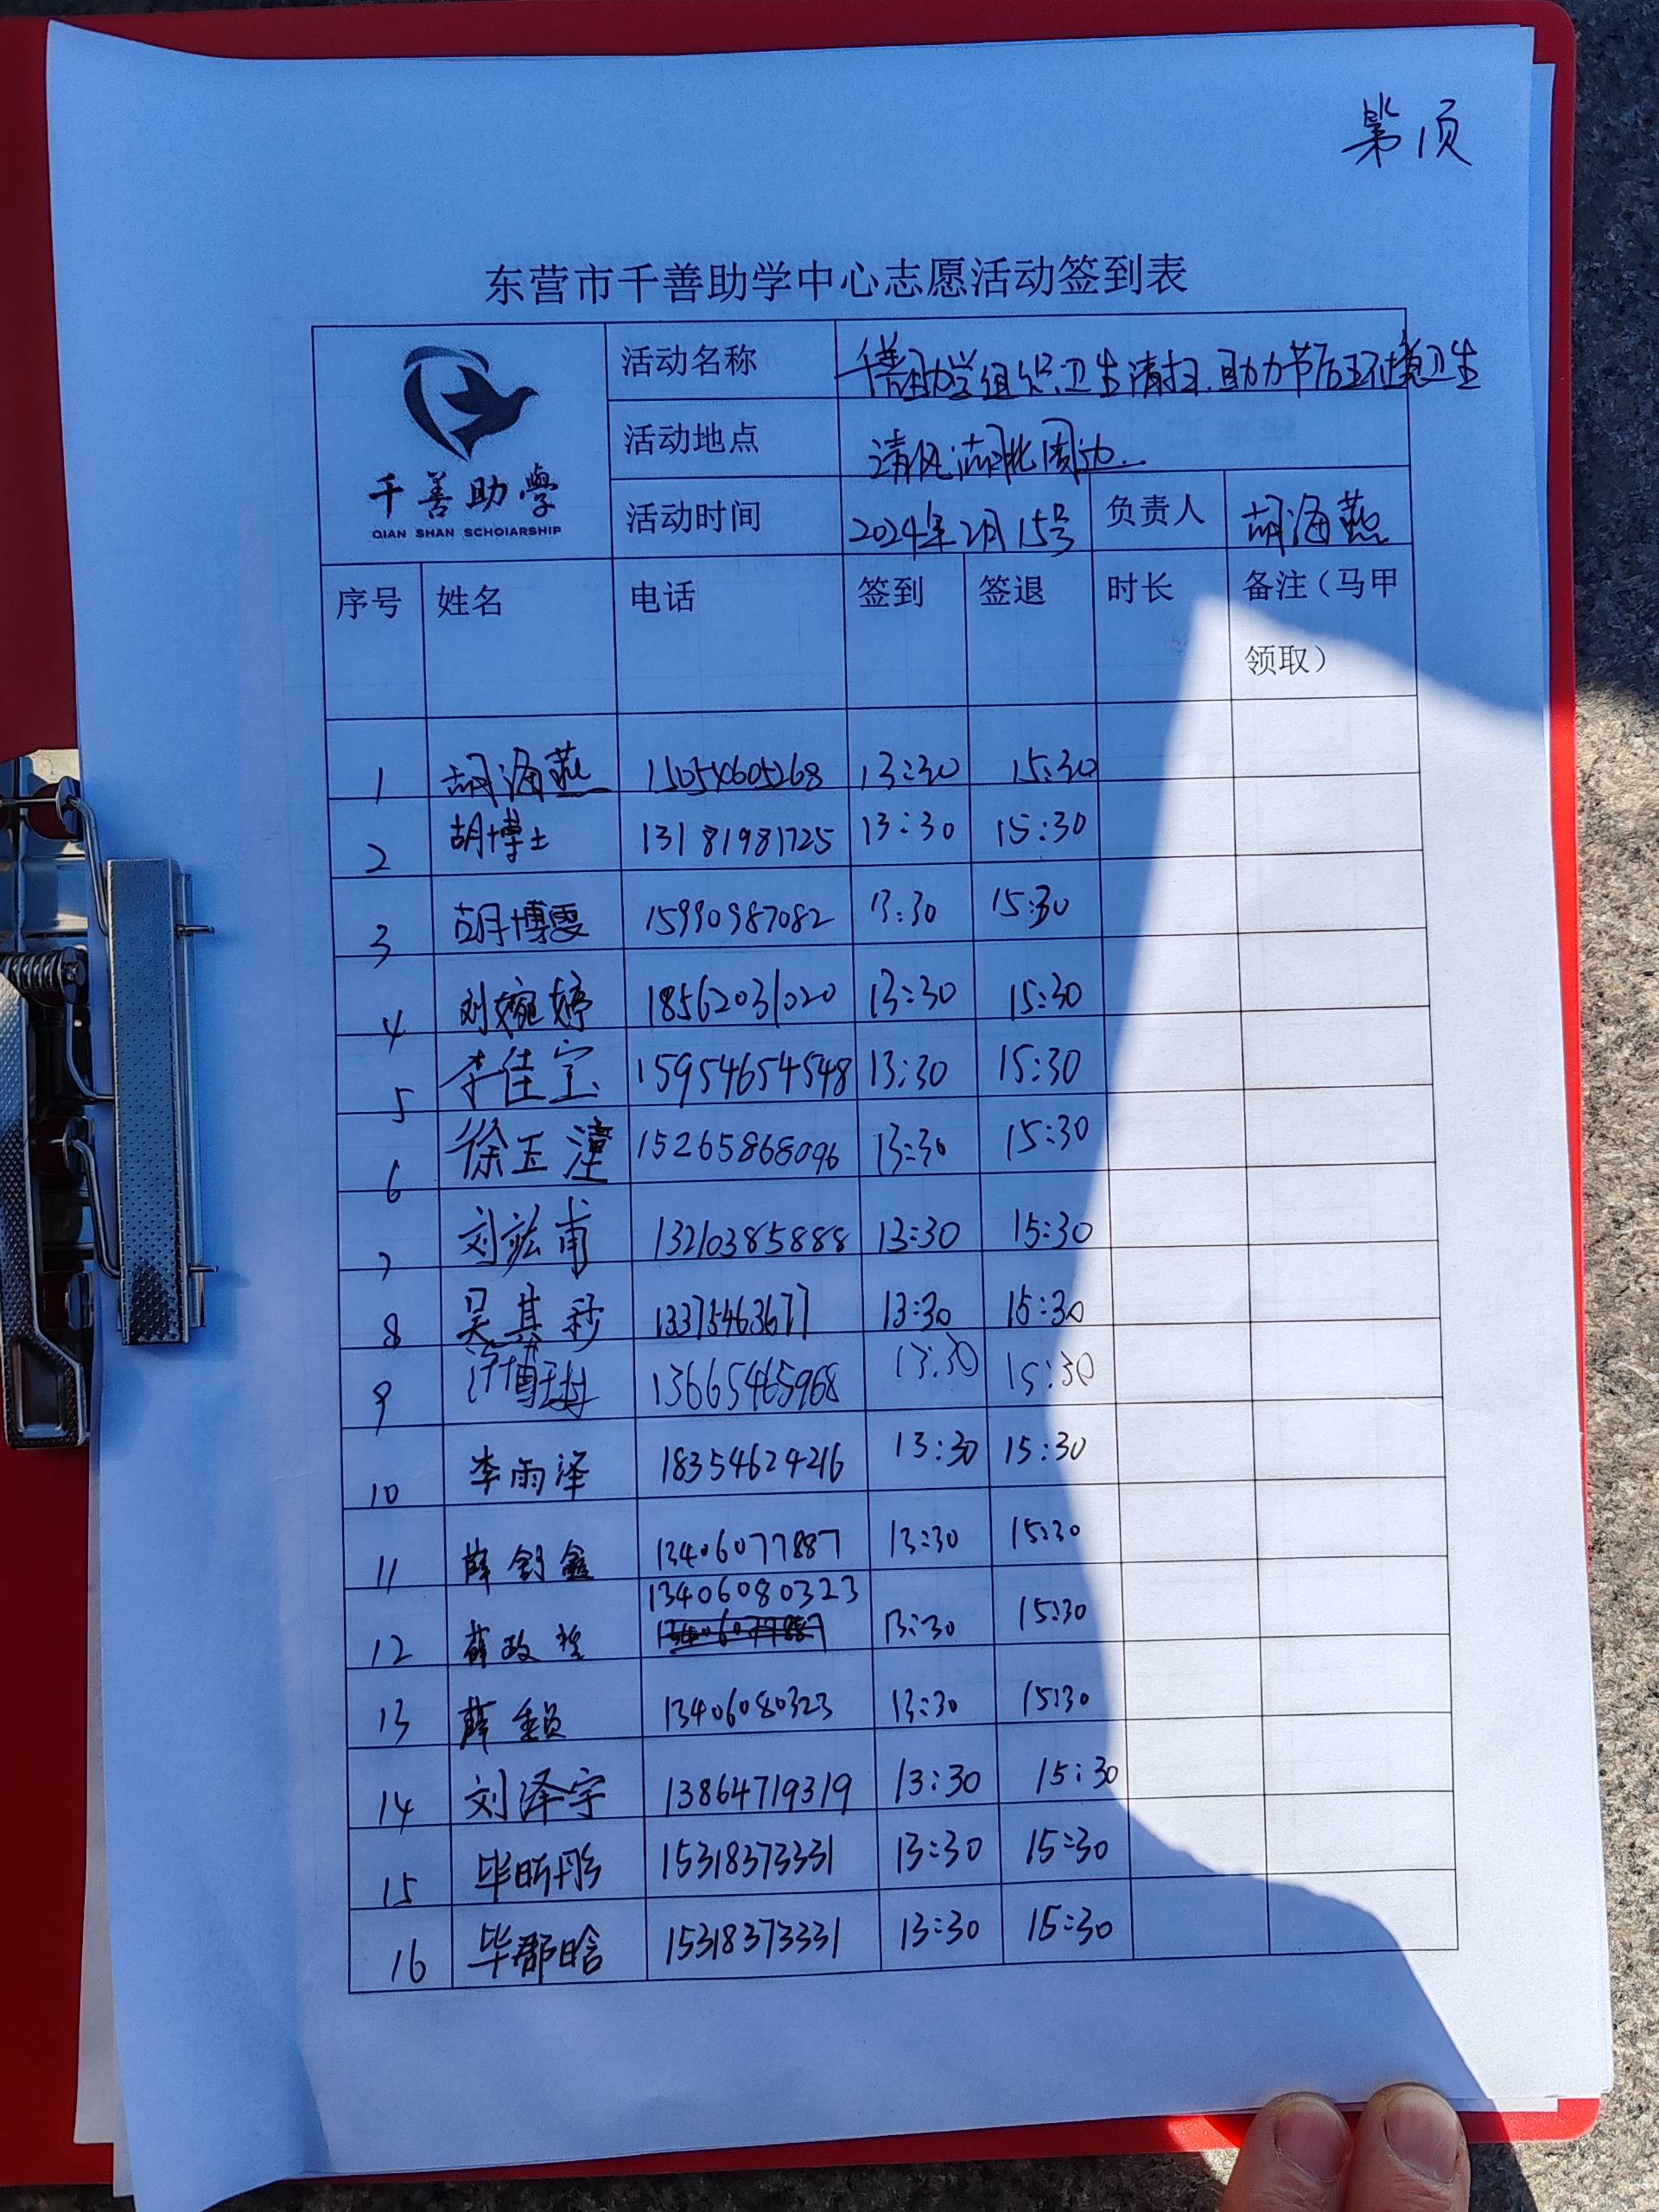 第1页
东营市千善助学中心志愿活动签到表
千善助学
QIAN SHAN SCHOIARSHIP
活动名称 千善助学组织卫生清扫.助力节后环境卫生
活动地点 清风湖北周边
活动时间 2024年2月15号 负责人 胡海燕
序号 姓名 电话 签到 签退 时长 备注（马甲
领取）
1 胡海燕 15054605268 13:30 15:30
2 胡博士 13181981725 13:30 15:30
3 胡博雯 15990987082 13:30 15:30
4 刘婉婷 18562031020 13:30 15:30
5 李佳宝 15954654548 13:30 15:30
6 徐玉潼 15265868096 13:30 15:30
7 刘竑甫 13210385888 13:30 15:30
8 吴其秒 13375463677 13:30 15:30
9 13665465968 13:30 15:30
10 李雨泽 18354624216 13:30 15:30
11 薛钧鑫 13406077887 13:30 15:30
13406080323
12 薛政 13:30 15:30
13 薛 13406080323 13:30 15:30
14 刘泽宇 13864719319 13:30 15:30
15 毕昕彤 15318373331 13:30 15:30
16 毕郡晗 15318373331 13:30 15:30